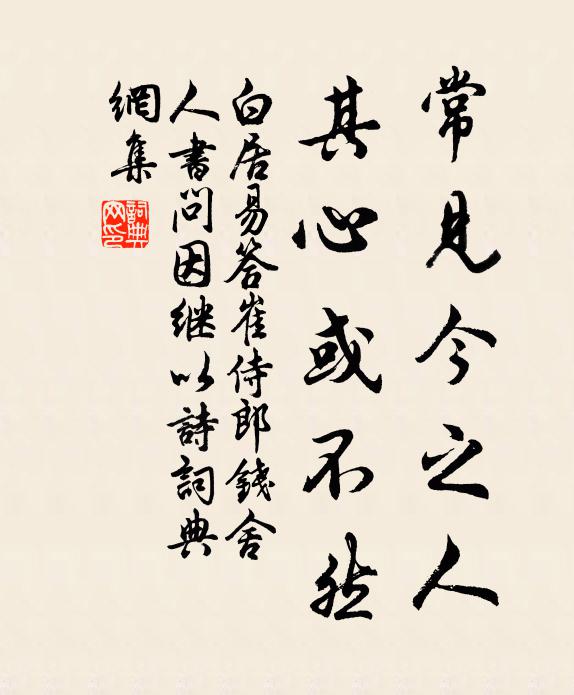 常見今之人
其心或不然
白居易答崔侍郎錢舍
人書問因继以詩詞典
網集
詞典
网印